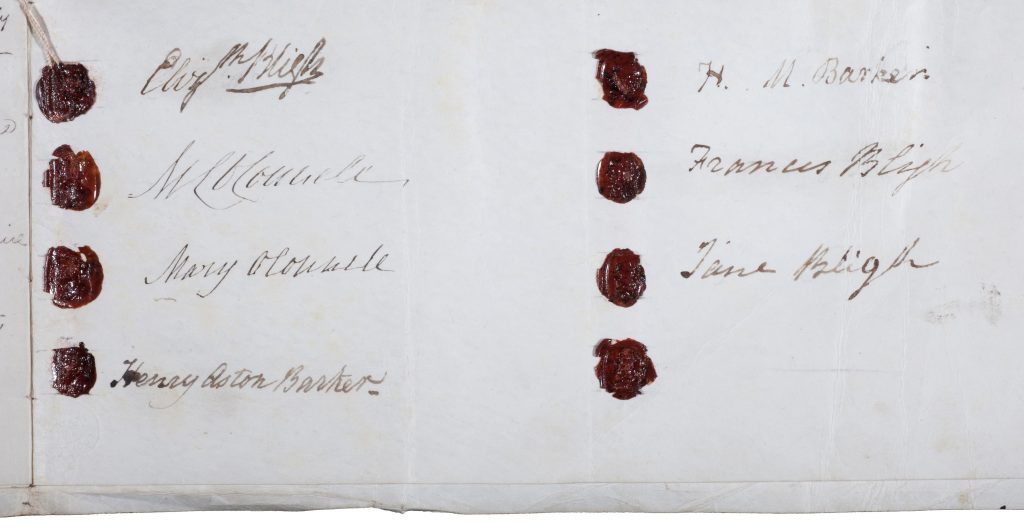 Eliz.th Bligh
M C O'Connell
Mary O'Connell
Henry Aston Barker
H. M. Barker
Frances Bligh
Jane Bligh